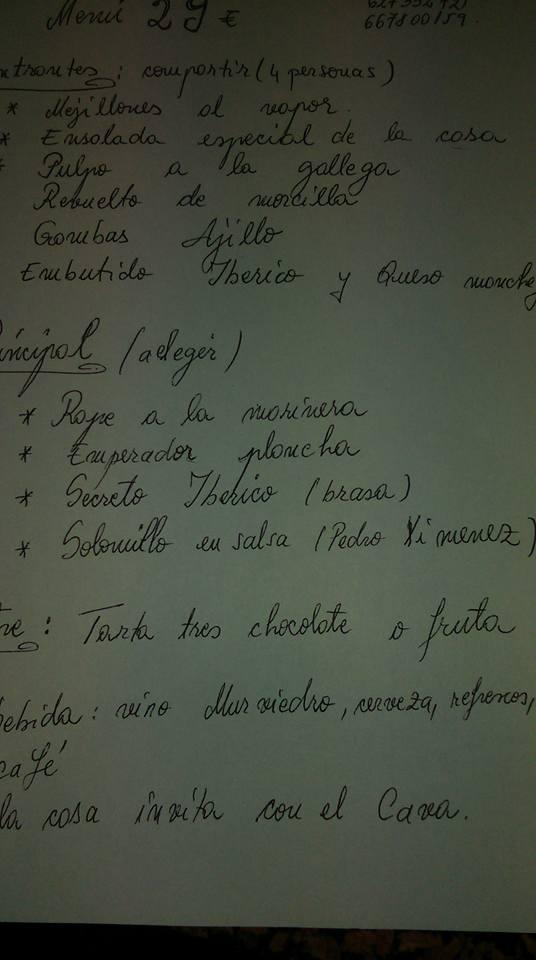 Menú 29 €
667800159.
entrantes: compartir (4 personas)
* Mejillones al vapor.
* Ensalada especial de la casa
* Pulpo a la gallega
Revuelto de morcilla
Gambas Ajillo
Embutido Iberico y Queso manche
rincipal (a elegir)
* Rape a la marinera
* Emperador plancha
* Secreto Iberico (brasa)
* Solomillo en salsa (Pedro Ximenez)
tre: Tarta tres chocolate o fruta
bebida: vino Murviedro, cerveza, refrescos,
café
la casa invita con el Cava.